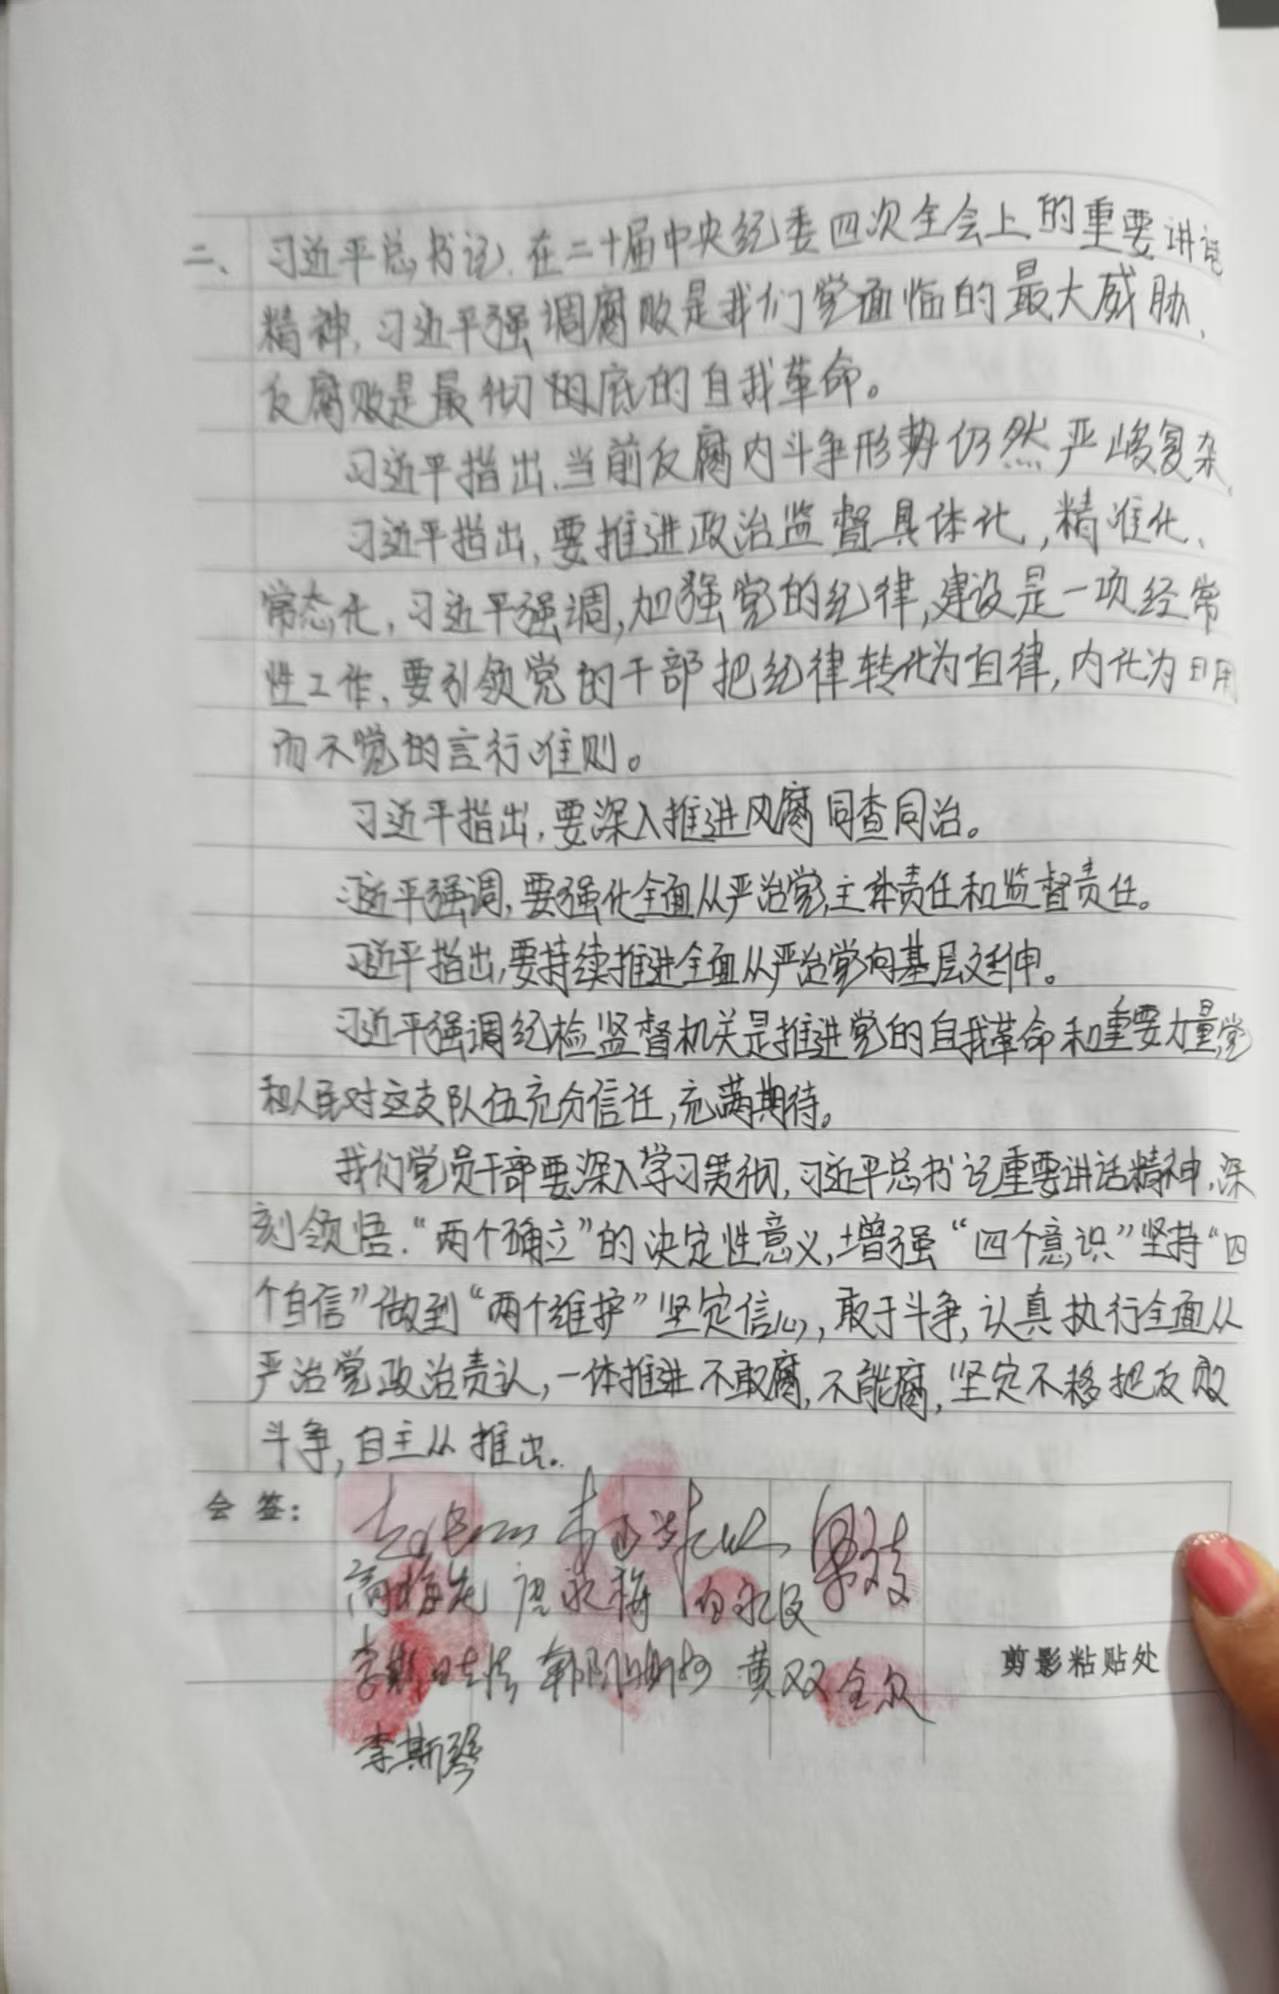 二、习近平总书记.在二十届中央纪委四次全会上的重要讲话
精神,习近平强调腐败是我们党面临的最大威胁、
反腐败是最彻的底的自我革命。
习近平指出.当前反腐内斗争形势仍然严峻复杂,
习近平指出,要推进政治监督具体化,精准化、
常态化,习近平强调,加强党的纪律,建设是一项经常
性工作,要引领党的干部把纪律转化为自律,内化为日用
而不觉的言行准则。
习近平指出,要深入推进风腐同查同治。
习近平强调,要强化全面从严治党,主体责任和监督责任。
习近平指出,要持续推进全面从严治党向基层延伸。
习近平强调纪检监督机关是推进党的自我革命和重要力量,党
和人民对这支队伍充分信任,充满期待。
我们党员干部要深入学习贯彻,习近平总书记重要讲话精神,深
刻领悟.“两个确立”的决定性意义,增强“四个意识”坚持“四
个自信”做到“两个维护”坚定信心,敢于斗争,认真执行全面从
严治党政治责认,一体推进不敢腐,不能腐,坚定不移把反败
斗争,自主从推出.
会签:
唐永梅 白永
黄双全
剪影粘贴处
李斯琴